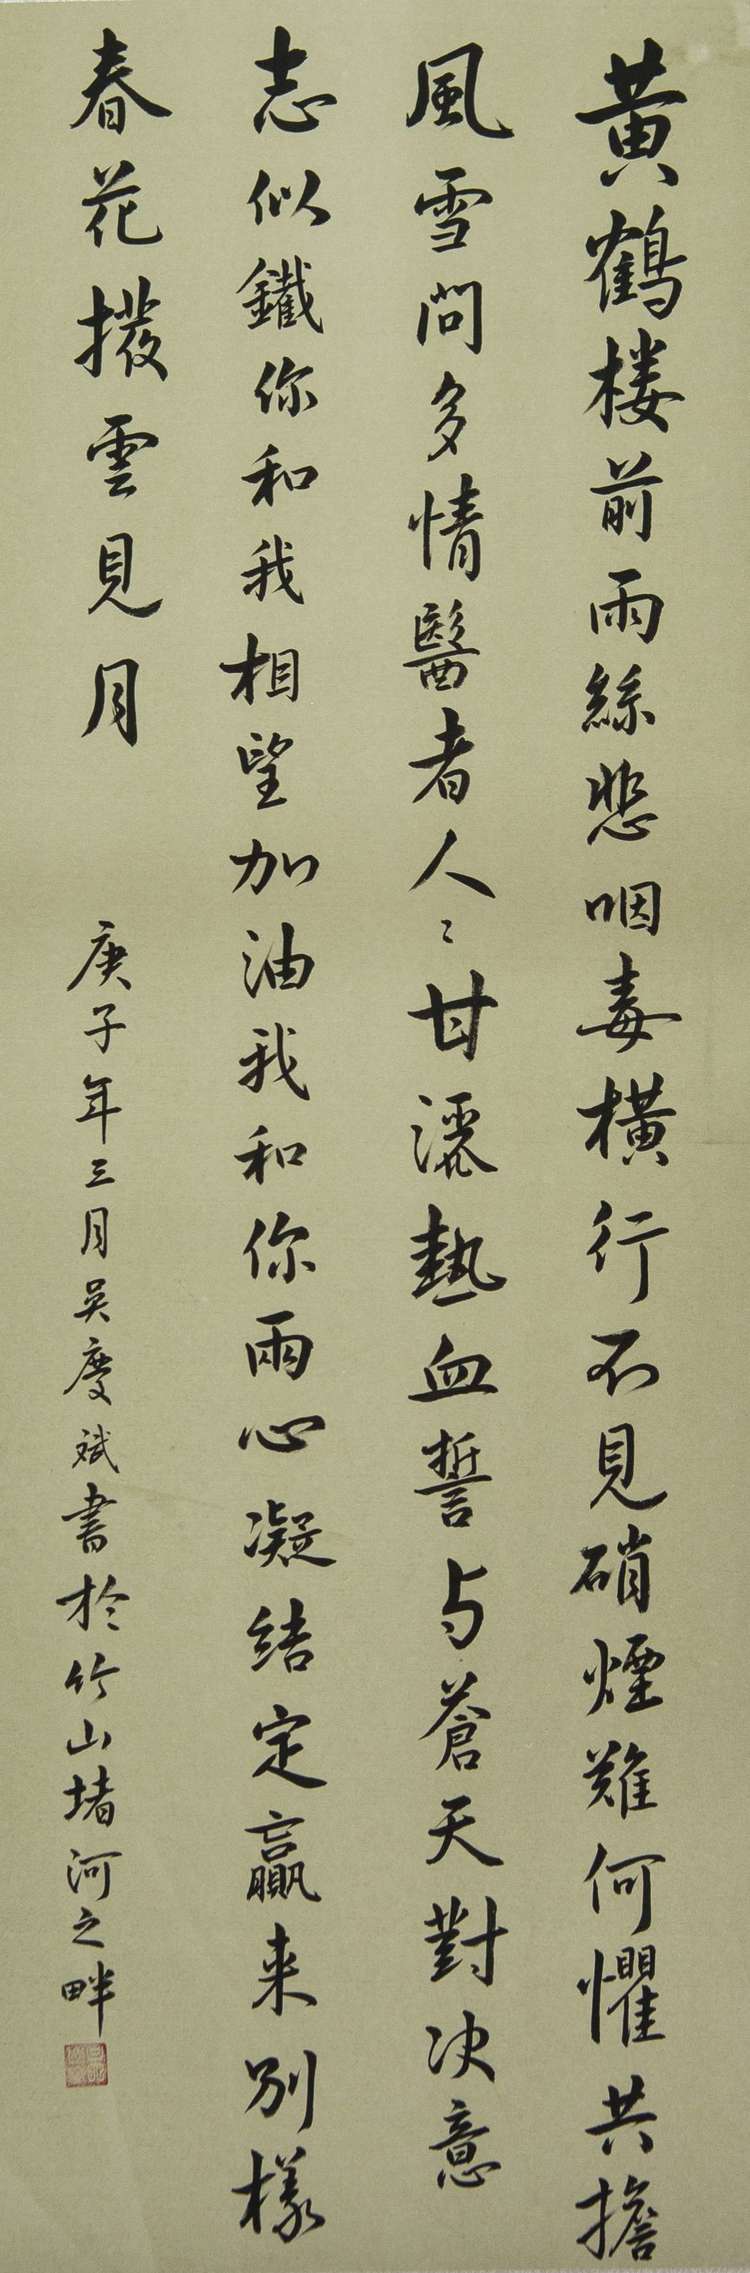 黄鶴楼前雨絲悲咽毒橫行不見硝煙難何懼共擔
風雪問多情醫者人々甘灑熱血誓与蒼天對决意
志似鐵你和我相望加油我和你兩心凝結定贏来别樣
春花撥雲見月
庚子年三月吴慶斌書於竹山堵河之畔